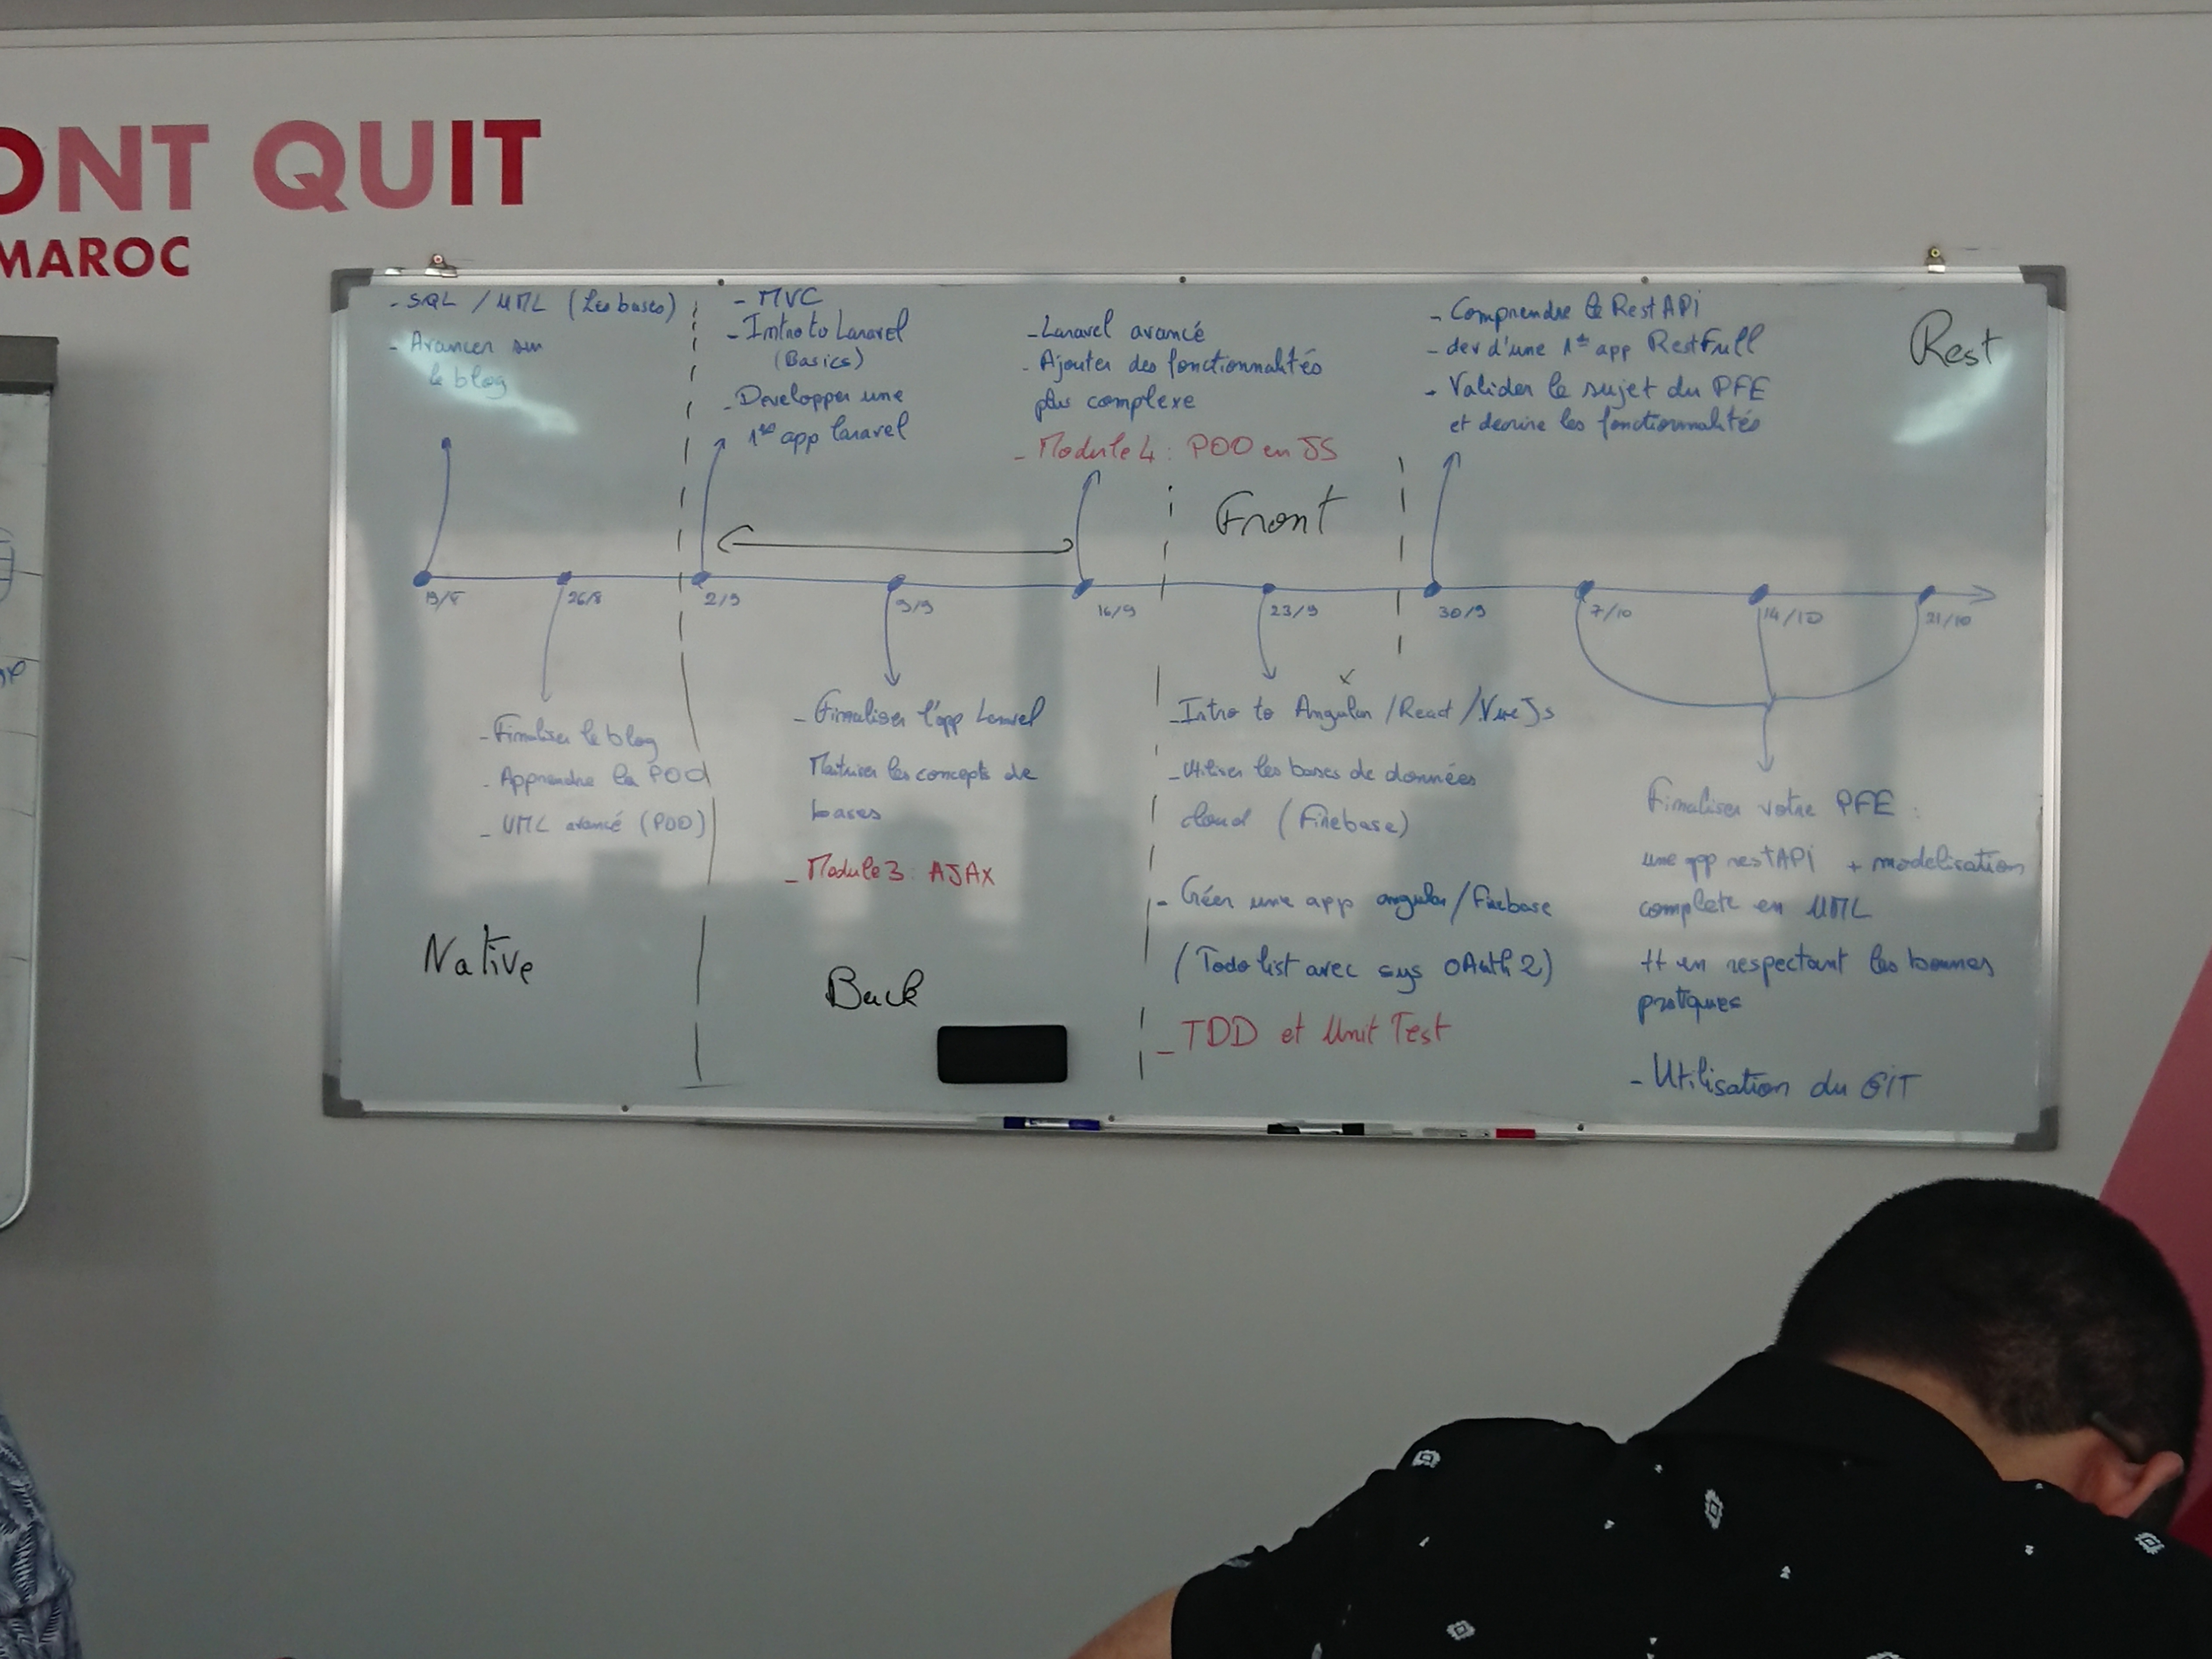 ONT QUIT
MAROC
- SQL / UML (Les bases)
- Avancer sur
le blog
- MVC
- Intro to Laravel
(Basics)
- Developper une
1ère app laravel
- Laravel avancé
- Ajouter des fonctionnalités
plus complexe
- Module 4 : POO en JS
- Comprendre le RestAPi
- dev d'une 1ère app RestFull
- Valider le sujet du PFE
et decrire les fonctionnalités
Rest
Front
19/8
26/8
2/9
9/9
16/9
23/9
30/9
7/10
14/10
21/10
- Finaliser le blog
- Apprendre la POO
- UML avancé (POO)
Native
- Finaliser l'app Laravel
Maitriser les concepts de
bases
- Module 3 : AJAX
Back
x
- Intro to Angular / React / Vue Js
- Utiliser les bases de données
cloud (Firebase)
- Créer une app angular / Firebase
(Todo list avec sys OAuth 2)
- TDD et Unit Test
Finaliser votre PFE :
une app restAPi + modelisation
complete en UML
++ en respectant les bonnes
pratiques
- Utilisation du GIT